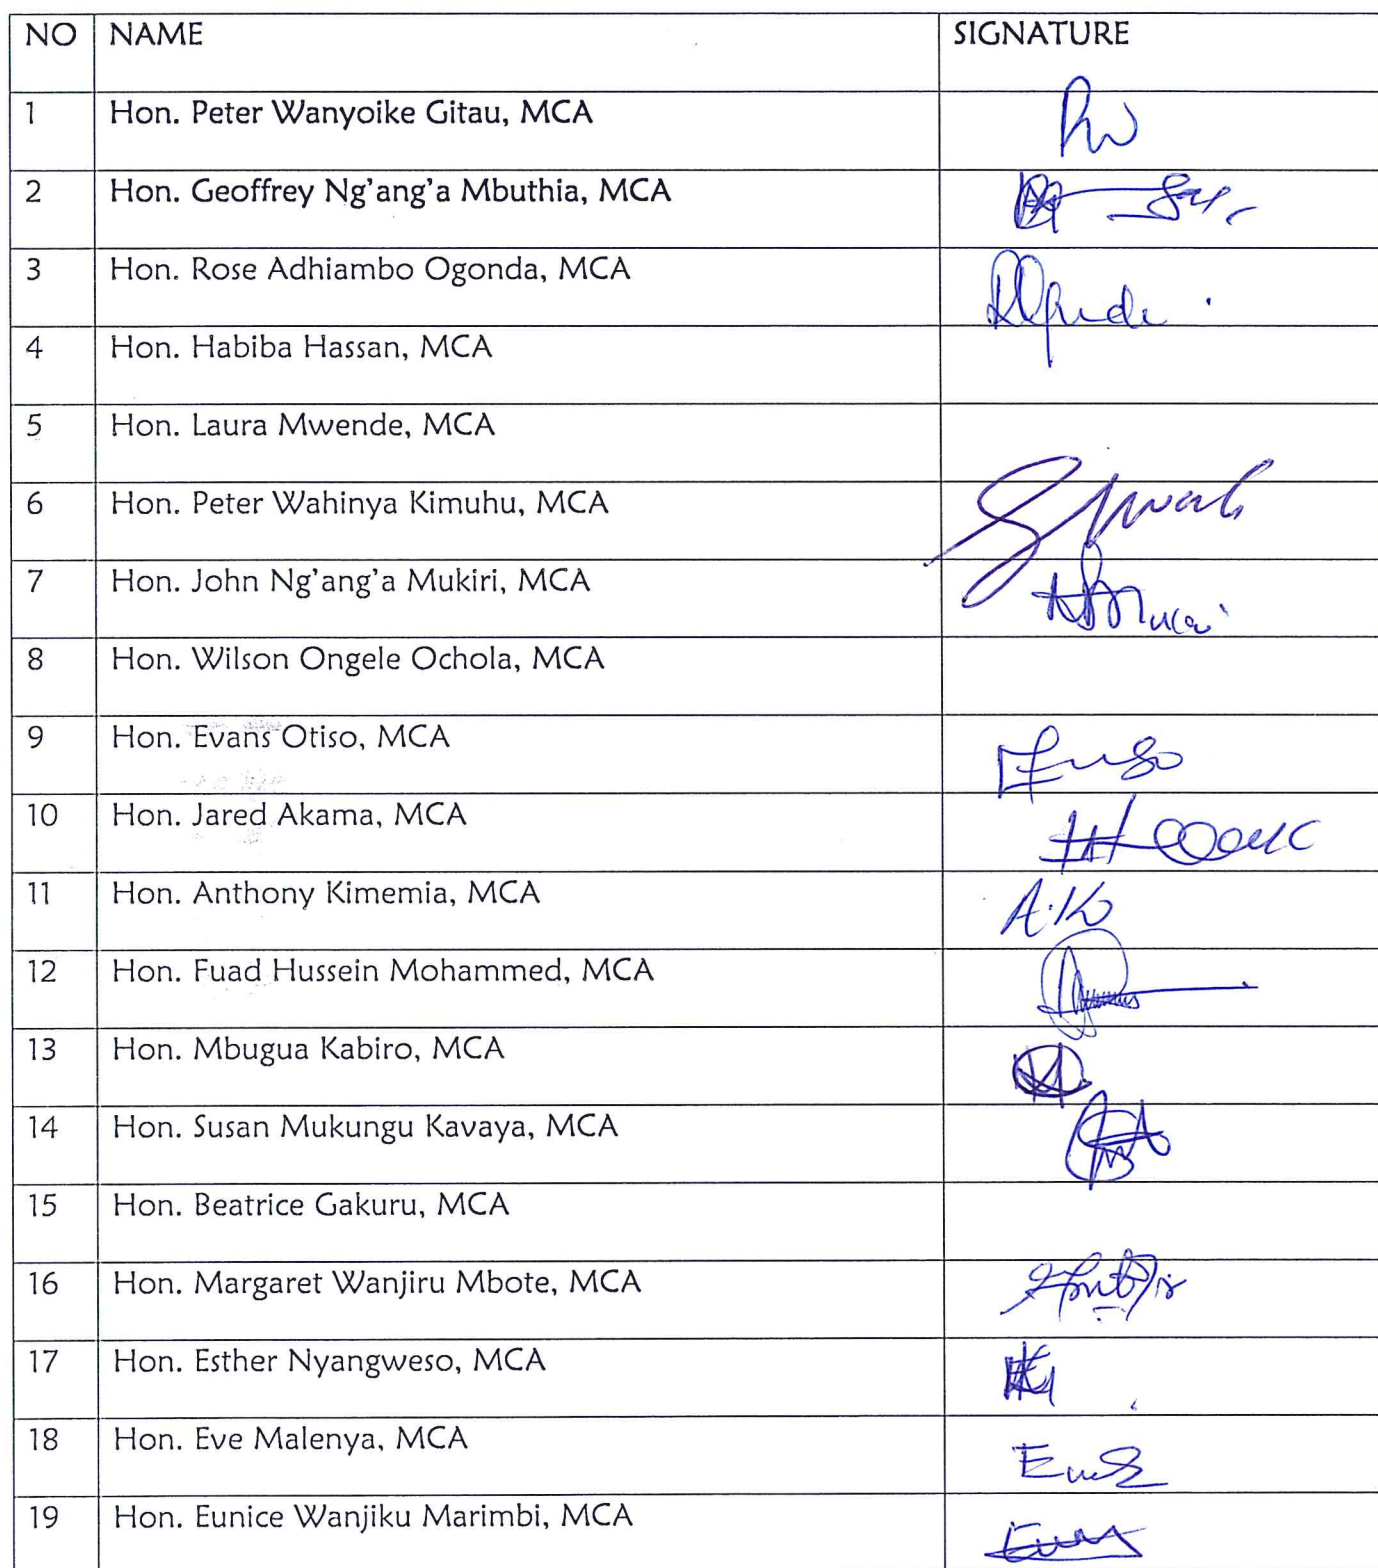 NO NAME SIGNATURE
1 Hon. Peter Wanyoike Gitau, MCA
2 Hon. Geoffrey Ng'ang'a Mbuthia, MCA
3 Hon. Rose Adhiambo Ogonda, MCA
4 Hon. Habiba Hassan, MCA
5 Hon. Laura Mwende, MCA
6 Hon. Peter Wahinya Kimuhu, MCA
7 Hon. John Ng'ang'a Mukiri, MCA
8 Hon. Wilson Ongele Ochola, MCA
9 Hon. Evans Otiso, MCA
10 Hon. Jared Akama, MCA
11 Hon. Anthony Kimemia, MCA A.K
12 Hon. Fuad Hussein Mohammed, MCA
13 Hon. Mbugua Kabiro, MCA
14 Hon. Susan Mukungu Kavaya, MCA
15 Hon. Beatrice Gakuru, MCA
16 Hon. Margaret Wanjiru Mbote, MCA
17 Hon. Esther Nyangweso, MCA
18 Hon. Eve Malenya, MCA
19 Hon. Eunice Wanjiku Marimbi, MCA